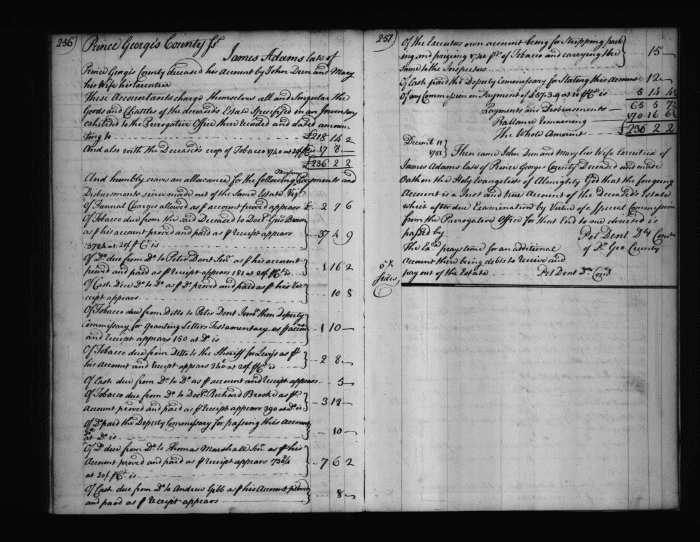 256
Prince George's County ss.
James Adams late of
Prince George's County deceased his Account by John Dun and Mary
his Wife his Executrix
These Accountants charge themselves all and Singular the
Goods and Chattles of the deceased's Estate Specified in an Inventory
exhibited to the Prerogative Office there Recorded and dated amoun
ting to £215 14 2
And also with the Deceased's crop of Tobacco
£236 2 2
And humbly crave an allowance for the following Payments and
Disbursements since made out of the same Estate Viz
Of Funeral Charges allowed as p account proved appears £ 2 7 6
Of Tobacco due from the said Deceased to Doct.
as p his account proved and paid as p receipt appears
37 4 9
Of D.o due from D.o to Peter Dent as p his Account
proved and paid as p Receipt appears 181 at 20/ p C.t is 1 16 2
Of Cash due D.o to D.o as p D.o proved and paid as p his Re
ceipt appears 10 8
Of Tobacco due from Ditto to Peter Dent then Deputy
Commissary for granting Letters Testamentary as p account
and receipt appears 150 at D.o is 1 10
Of Tobacco due from Ditto to the Sheriff for Levys as p
his account and receipt appears 240 at 20/ p C.t is 2 8
Of Cash due from D.o to D.o as p account and receipt appears 5
Of Tobacco due from D.o to Doct.r Richard Brooke as p
Account proved and paid as p receipt appears 390 at D.o is 3 18
Of D.o paid the Deputy Commissary for passing this Account
at D.o is 10
Of D.o due from D.o to Thomas Marshall as p his
Account proved and paid as p Receipt appears
at 20/ p C.t is 7 6 2
Of Cash due from D.o to Andrew Gibb as p his Account proved
and paid as p Receipt appears 8
257
Of the Executors own account being for Stripping pack
ing and prizing of Tobacco and carrying the
same to the Inspectors 15
Of Cash paid the Deputy Commissary for Stating this Account 12
Of my Commission on Payment of £57.3.9 at 10 p C.t is 5 14 4
Payments and Disbursements 65 5
Ballance Remaining 170 16
The Whole Amount £236 2 2
Then came John Dun and Mary his Wife Executrix of
James Adams late of Prince George County Deceased and made
Oath on the Holy Evangelists of Almighty God that the foregoing
Account is a Just and true Account of the Deceased's Estate
which after due Examination by Virtue of a Special Commission
from the Prerogative Office for that End to me directed is
passed by Pet Dent D.ty Com.ry
of P. Geo County
The Ex.x prays time for an additional
Account there being debts to receive and
pay out of the Estate Pet Dent D. Com.ry